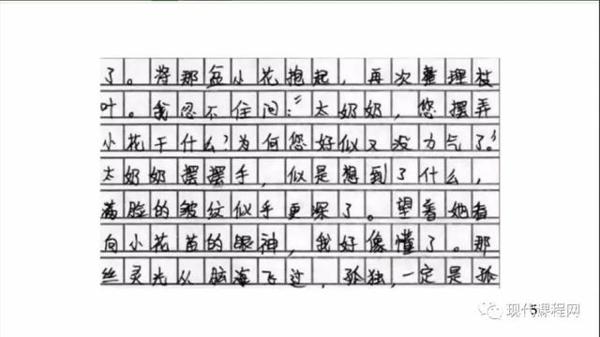 了。将那盆小花抱起，再次整理枝
叶。我忍不住问：“太奶奶，您摆弄
小花干什么？为何您好似又没力气了？”
太奶奶摆摆手，似是想到了什么，
满脸的皱纹似乎更深了。望着她看
向小花苗的眼神，我好像懂了。那
丝灵光从脑海飞过，孤独，一定是孤
5
现代课程网